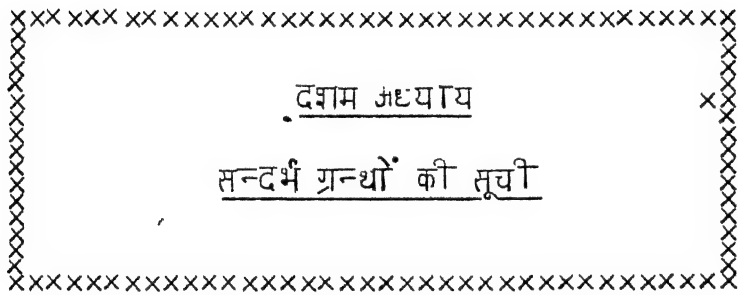 दशम अध्याय
सन्दर्भ ग्रन्थों की सूची